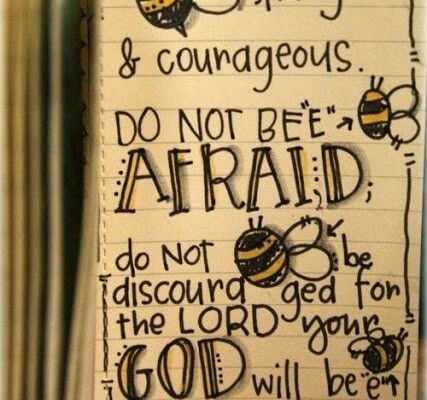 & courageous.
DO NOT BE"E"
AFRAID;
do NOT be
discouraged for
the LORD your
GOD will be"e"